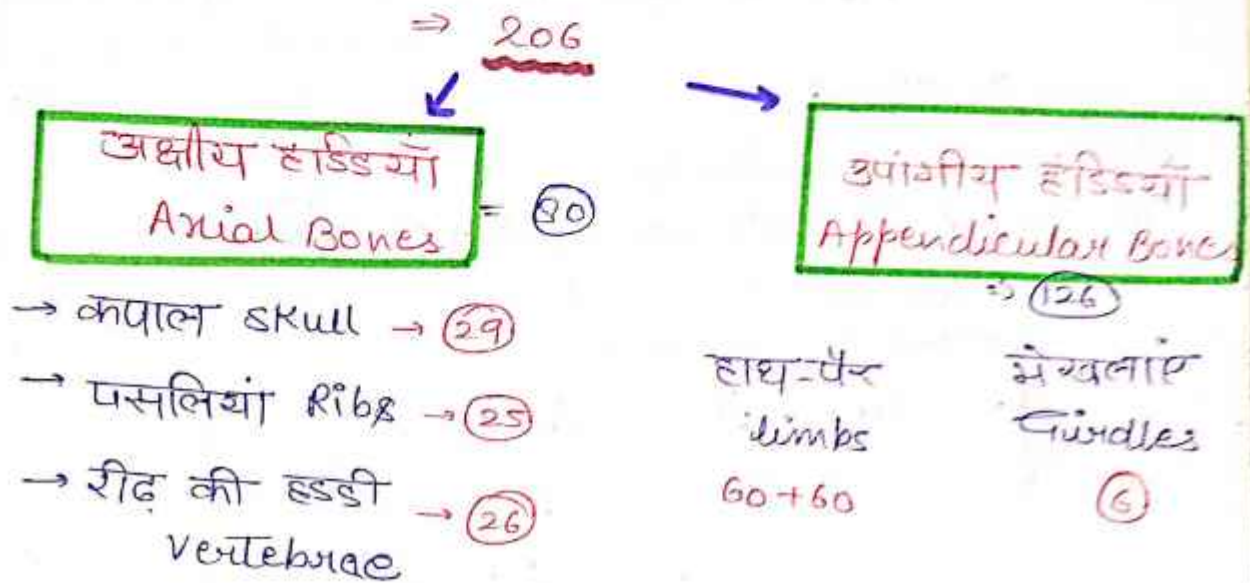 ⇒ 206
अक्षीय हडिडयाँ
Axial Bones
= 80
→ कपाल skull → 29
→ पसलियां Ribs → 25
→ रीढ़ की हडडी
vertebrae → 26
उपांगीय हडिडयाँ
Appendicular Bones
⇒ 126
हाथ-पैर
limbs
60+60
मेखलाएं
Girdles
6